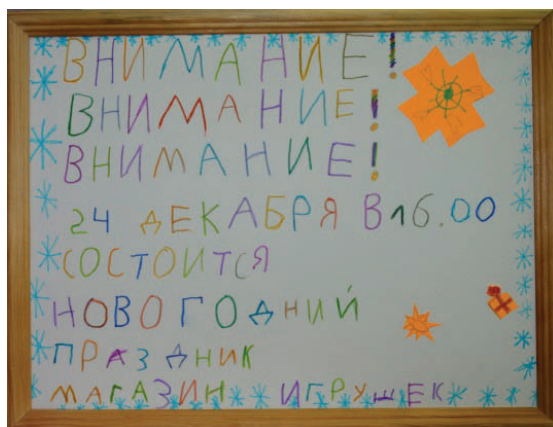 ВНИМАНИЕ!
ВНИМАНИЕ!
ВНИМАНИЕ!
24 ДЕКАБРЯ В 16.00
СОСТОИТСЯ
НОВОГОДНИЙ
ПРАЗДНИК
МАГАЗИН ИГРУШЕК